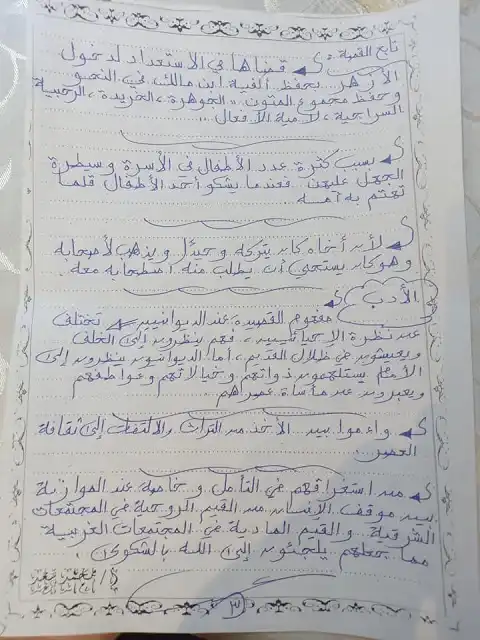 تابع القصة :
قضاها في الاستعداد لدخول
الأزهر بحفظ ألفية ابن مالك في النحو
وحفظ مجموع المتون " الجوهرة ، الخريدة ، الرحبية
السراجية ، لامية الأفعال ..
بسبب كثرة عدد الأطفال في الأسرة وسيطرة
الجهل عليهن فعندما يشكو أحد الأطفال قلما
تغتم به أمه ..
لأن أخاه كان يتركه وحيدًا ويذهب لأصحابه
وهو كان يستحي أن يطلب منه اصطحابه معه
الأدب
مفهوم القصيدة عند الديوانيين تختلف
عن نظرة الإحيائيين ، فهم ينظرون إلى الخلف
ويعيشون في ظلال القديم ، أما الديوانيون ينظرون إلى
الأمام يستلهمون ذواتهم وخيالاتهم وعواطفهم
ويعبرون عن مأساة عصرهم ..
واءموا بين الأخذ من التراث والالتفات إلى ثقافة
العصر ..
من استغراقهم في التأمل و خاصة عند الموازنة
بين موقف الإنسان من القيم الروحية في المجتمعات
الشرقية والقيم المادية في المجتمعات الغربية
مما جعلهم يلجئون إلى الله بالشكوى .
٣